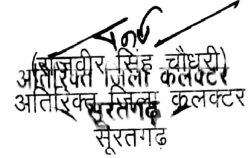 (राजवीर सिंह चौधरी)
अतिरिक्त जिला कलक्टर
अतिरिक्त जिला कलक्टर
सूरतगढ़
सूरतगढ़